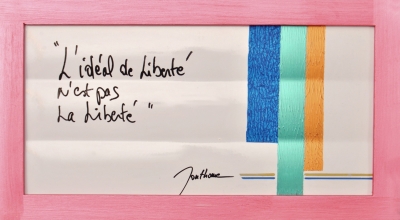 "L'idéal de Liberté
n'est pas
La Liberté"
Jonthone